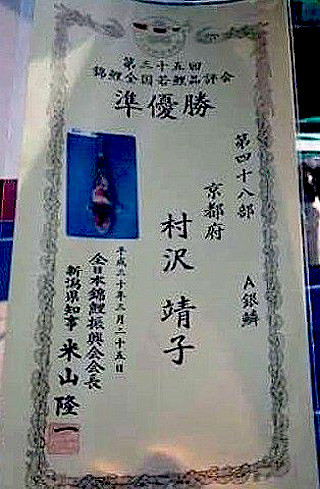 第三十五回
錦鯉全国若鯉品評会
準優勝
第四十八部 A銀鱗
京都府
村沢靖子
平成三十年二月二十五日
全日本錦鯉振興会会長
新潟県知事 米山隆一